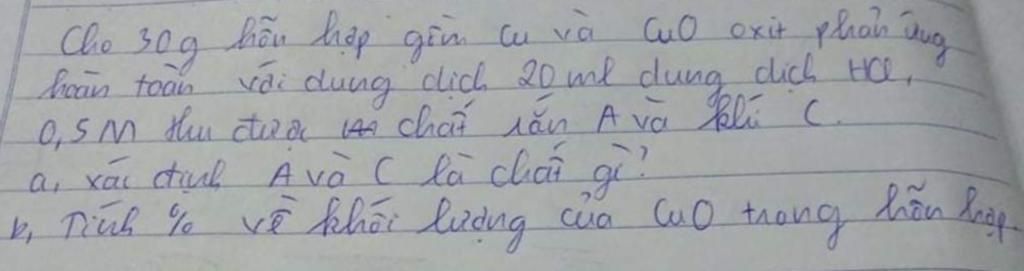 Cho 30g hỗn hợp gồm Cu và CuO oxit phản ứng
hoàn toàn với dung dịch 20 ml dung dịch HCl,
0,5M thu được chất rắn A và khí C.
a, xác định A và C là chất gì?
b, Tính % về khối lượng của CuO trong hỗn hợp.